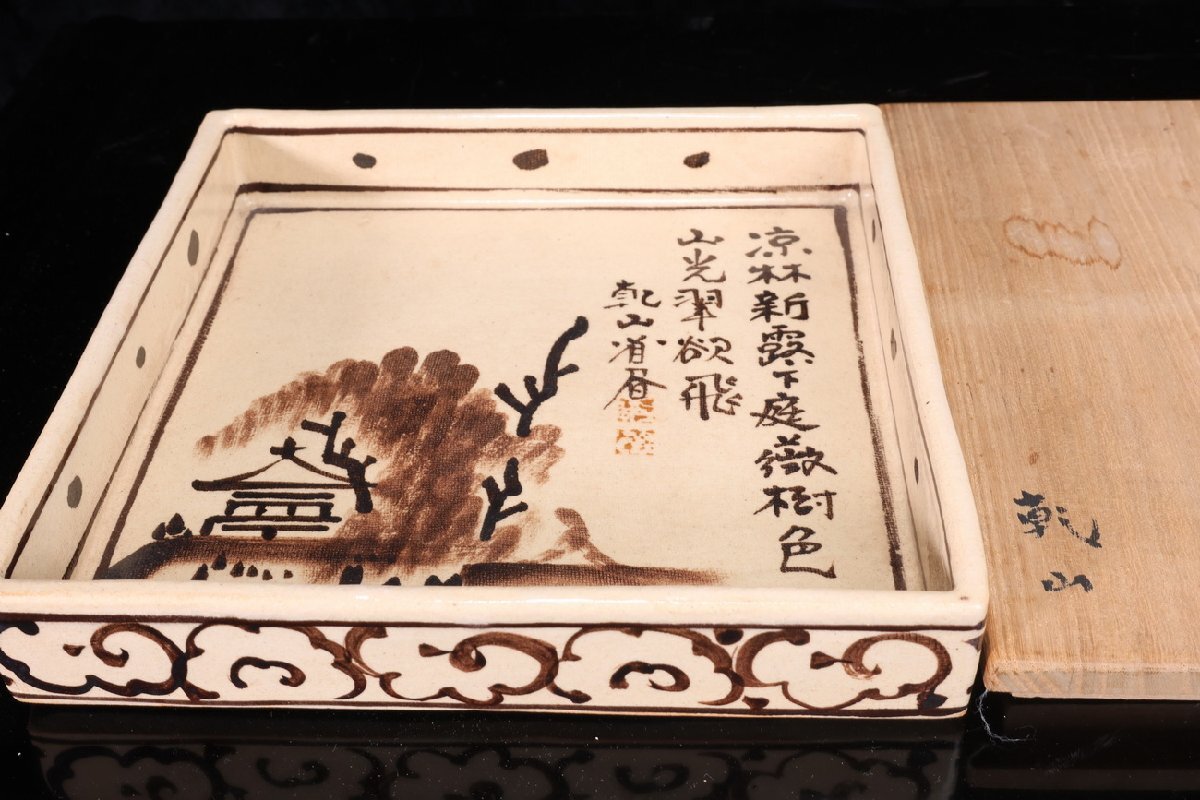 凉林新露下庭薇樹色
山光翠欲飛
乾山
乾山